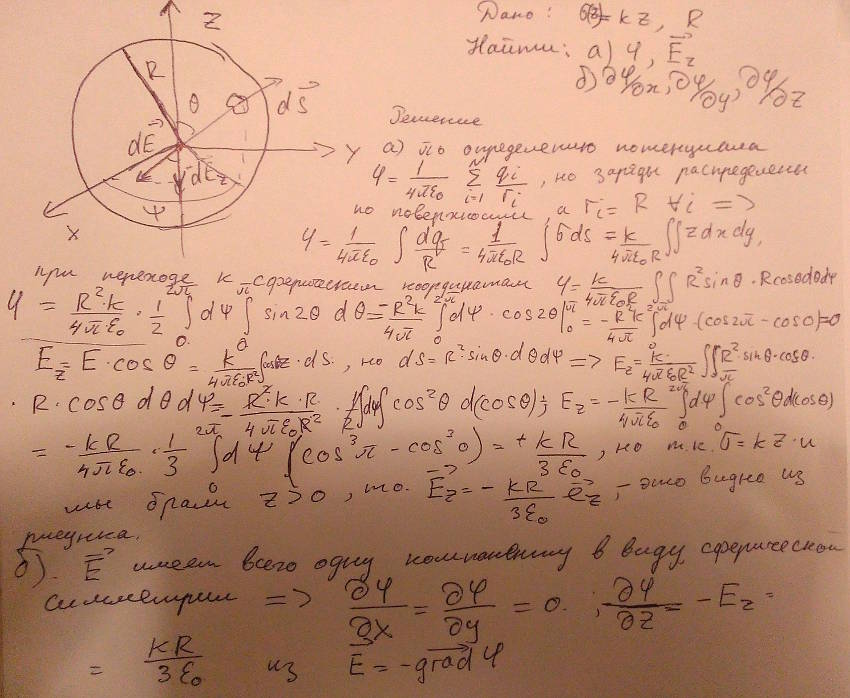 Z
R
θ
dS
dE
Y
dE_z
ψ
X
Дано: σ(z)=kz, R
Найти: а) φ, E_z
б) ∂φ/∂x; ∂φ/∂y; ∂φ/∂z
Решение
а) По определению потенциала
φ = 1/4πε₀ Σ_{i=1}^{N} q_i/r_i, но заряды распределены
по поверхности, а r_i = R ∀i =>
φ = 1/4πε₀ ∫ dq/R = 1/4πε₀R ∫σds = k/4πε₀R ∬zdxdy,
при переходе к сферическим координатам φ = k/4πε₀R ∬ R² sinθ · R cosθ dθ dψ
φ = R²·k/4πε₀ · 1/2 ∫₀^{2π} dψ ∫₀^{π} sin2θ dθ = -R²k/4π ∫₀^{2π} dψ · cos2θ|₀^π = -R²k/4π ∫₀^{2π} dψ·(cos2π - cos0)=0
E_z = E·cosθ = k/4πε₀R² ∫cosθz·ds, но ds=R²·sinθ·dθdψ => E_z = k/4πε₀R² ∬R²·sinθ·cosθ·
· R·cosθ dθdψ = -R²·k·R/4πε₀R² · ∫dψ∫cos²θ d(cosθ); E_z = -kR/4πε₀ ∫₀^{2π} dψ ∫₀^{π} cos²θ d(cosθ)
= -kR/4πε₀ · 1/3 ∫₀^{2π} dψ (cos³π - cos³0) = + kR/3ε₀, но т.к. σ=kz и
мы брали z>0, то E_z = - kR/3ε₀ e_z, - это видно из
рисунка.
б). E имеет всего одну компоненту в виду сферической
симметрии => ∂φ/∂x = ∂φ/∂y = 0. ; ∂φ/∂z = -E_z =
= kR/3ε₀ из E = -grad φ